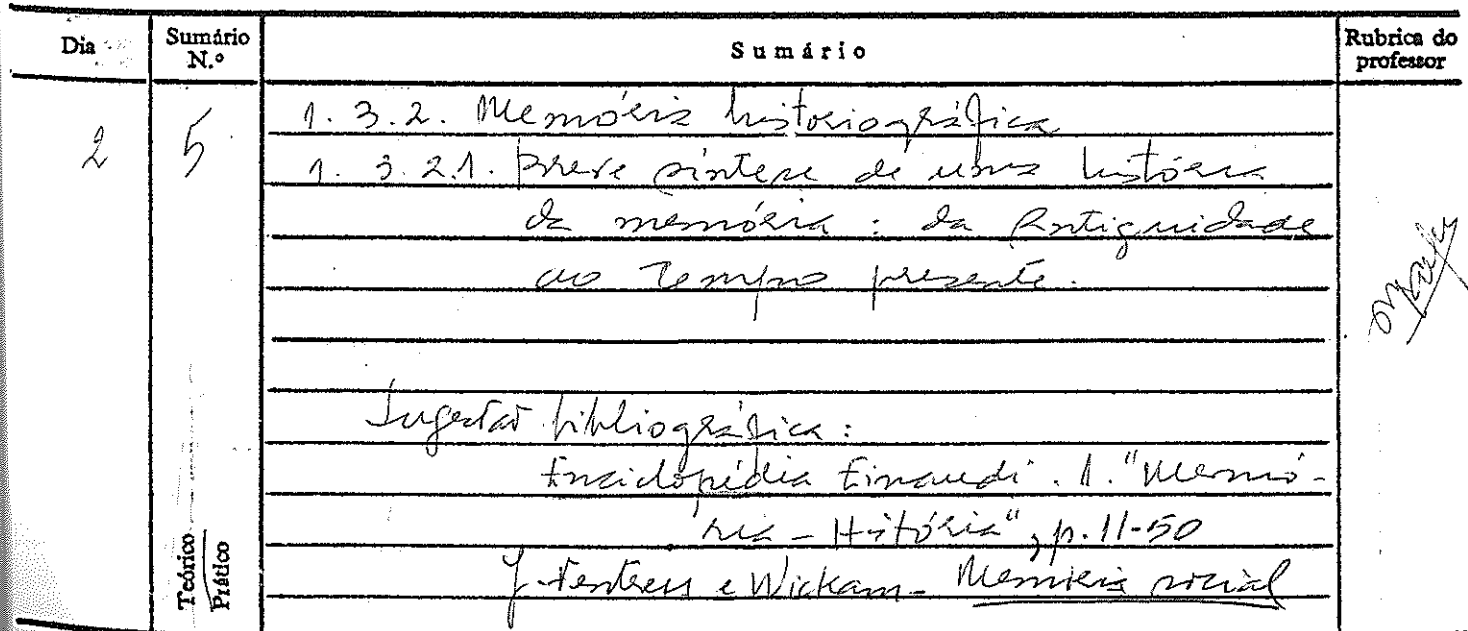 Dia
Sumário N.º
Sumário
Rubrica do professor
2
5
1.3.2. Memória historiográfica
1.3.2.1. Breve síntese de uma história
da memória: da Antiguidade
ao Tempo presente.
Sugestão bibliográfica:
Enciclopédia Einaudi. 1. "Memó-
ria - História", p. 11-50
J. Fentress e Wickam - Memória social
Teórico
Prático